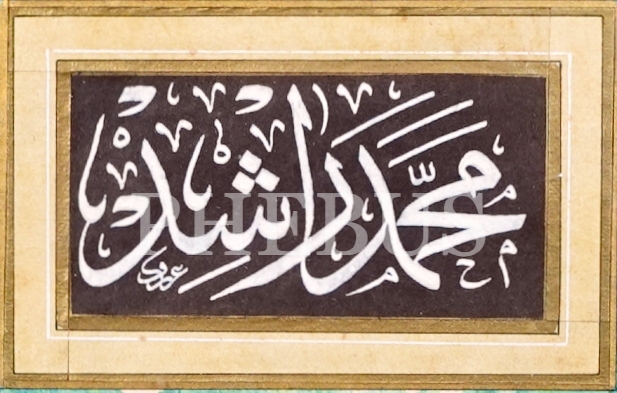 محمد راشد
PHEBUS